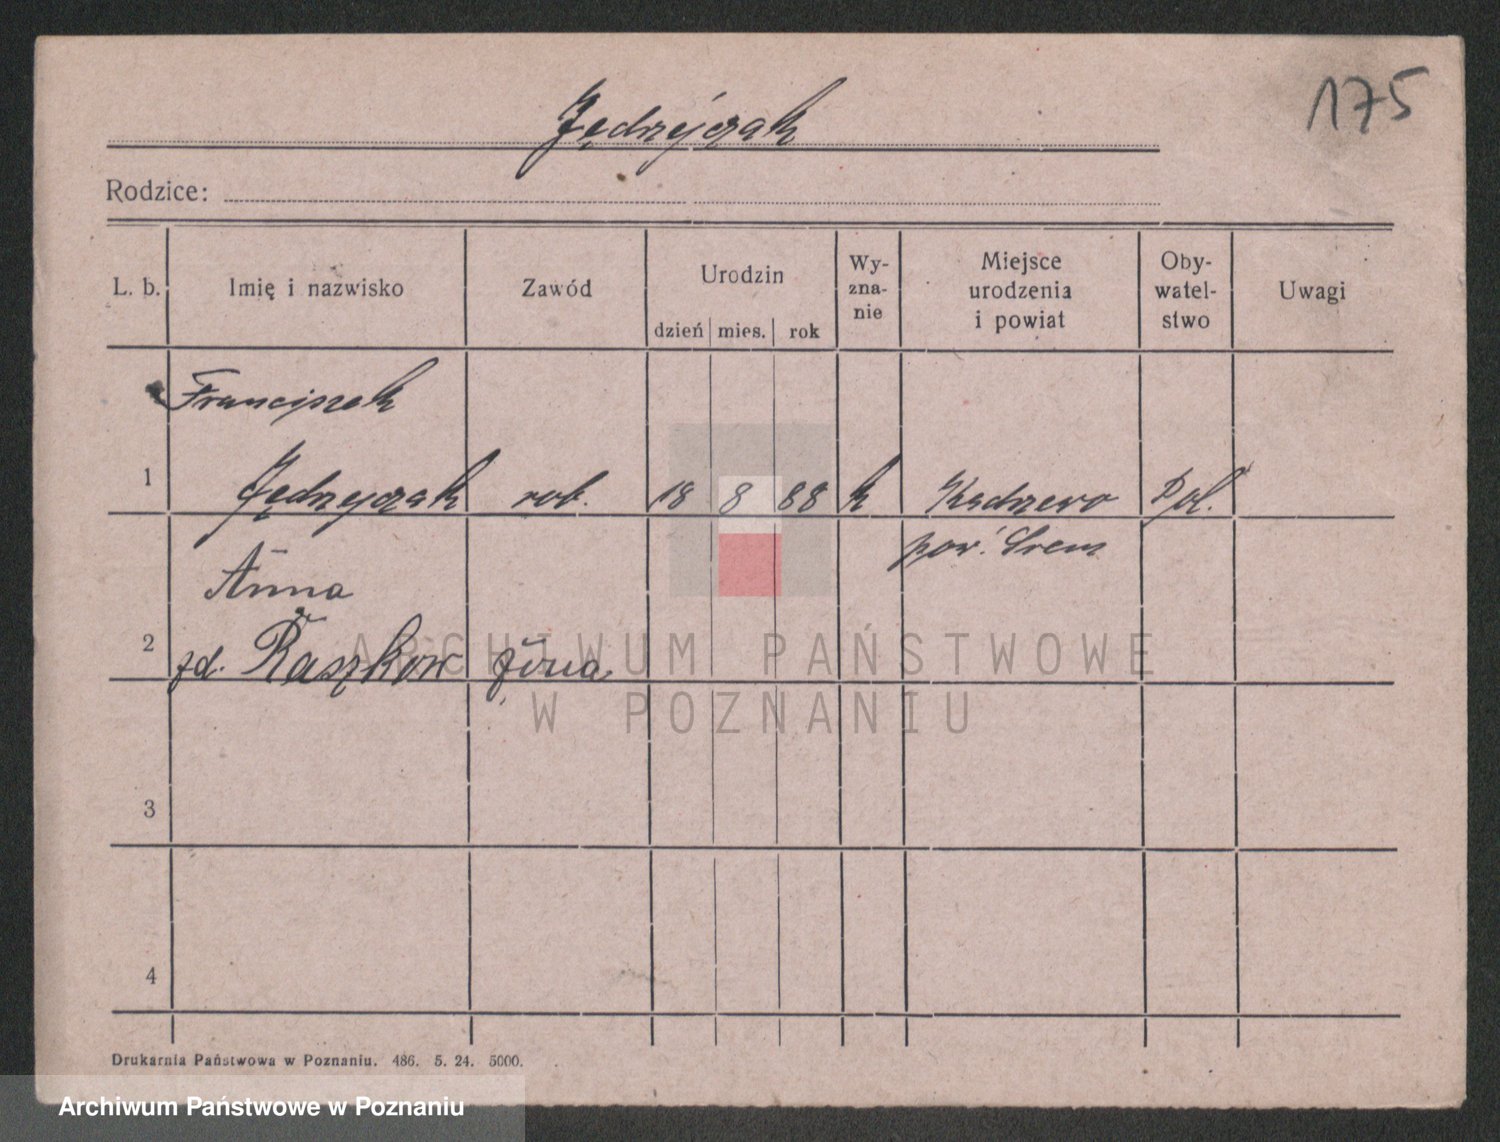 175
Jędrzejczak
Rodzice:
L. b. Imię i nazwisko Zawód Urodzin dzień mies. rok Wy-zna-nie Miejsce urodzenia i powiat Oby-watel-stwo Uwagi
Franciszek
1 Jędrzejczak rob. 18 8 88 k Kadzewo Pol.
pow. Śrem
Anna
2 zd. Raszkow żona
3
4
Drukarnia Państwowa w Poznaniu. 486. 5. 24. 5000.
ARCHIWUM PAŃSTWOWE
W POZNANIU
Archiwum Państwowe w Poznaniu